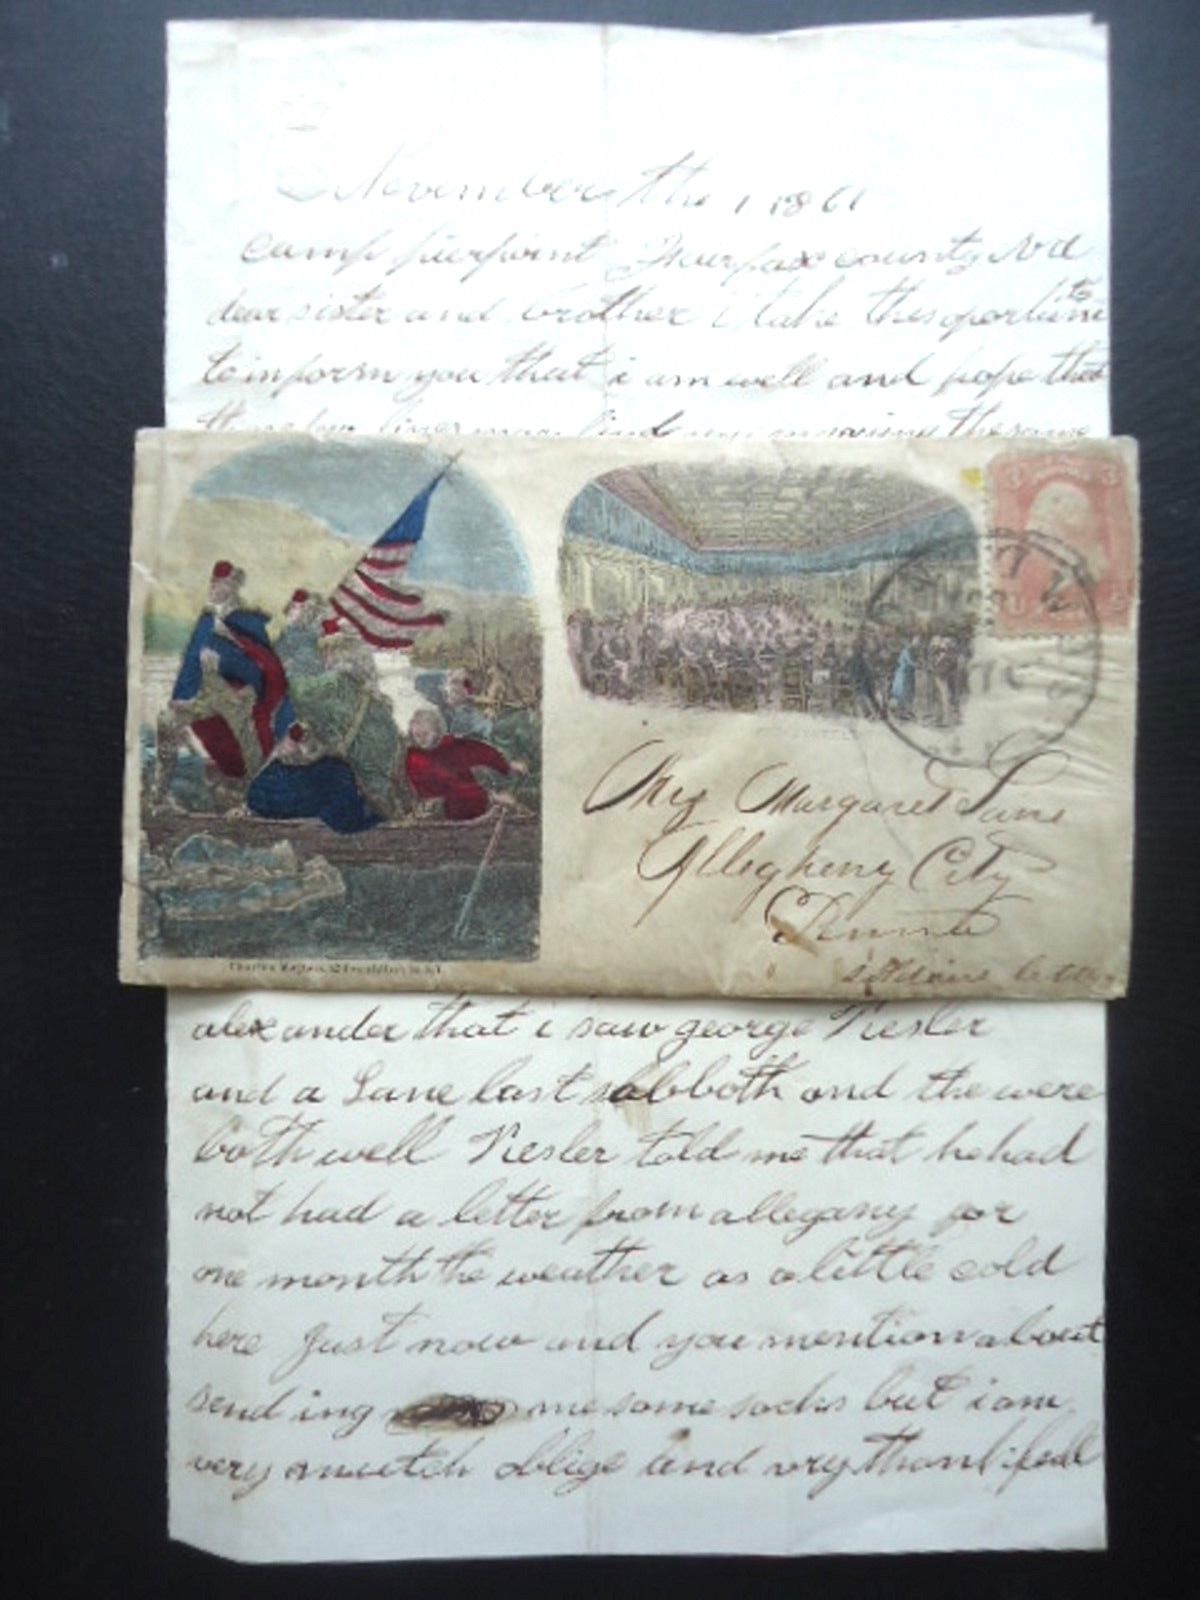 November the 1 1861
camp pierpoint Fairfax county Va
dear sister and brother i take thes oportunito
to inform you that i am well and hope that
these few lines may find you injoying the same
3 3
Mrs Margaret
Allegheny City
Penna
Charles Magnus, 12 Frankfort St. N.Y.
alexander that i saw george Kesler
and a Lane last sabboth and the were
both well Kesler told me that he had
not had a letter from allegany for
one month the weather as a little cold
here just now and you mention about
sending me some socks but i am
very mutch oblige and vry thankfull